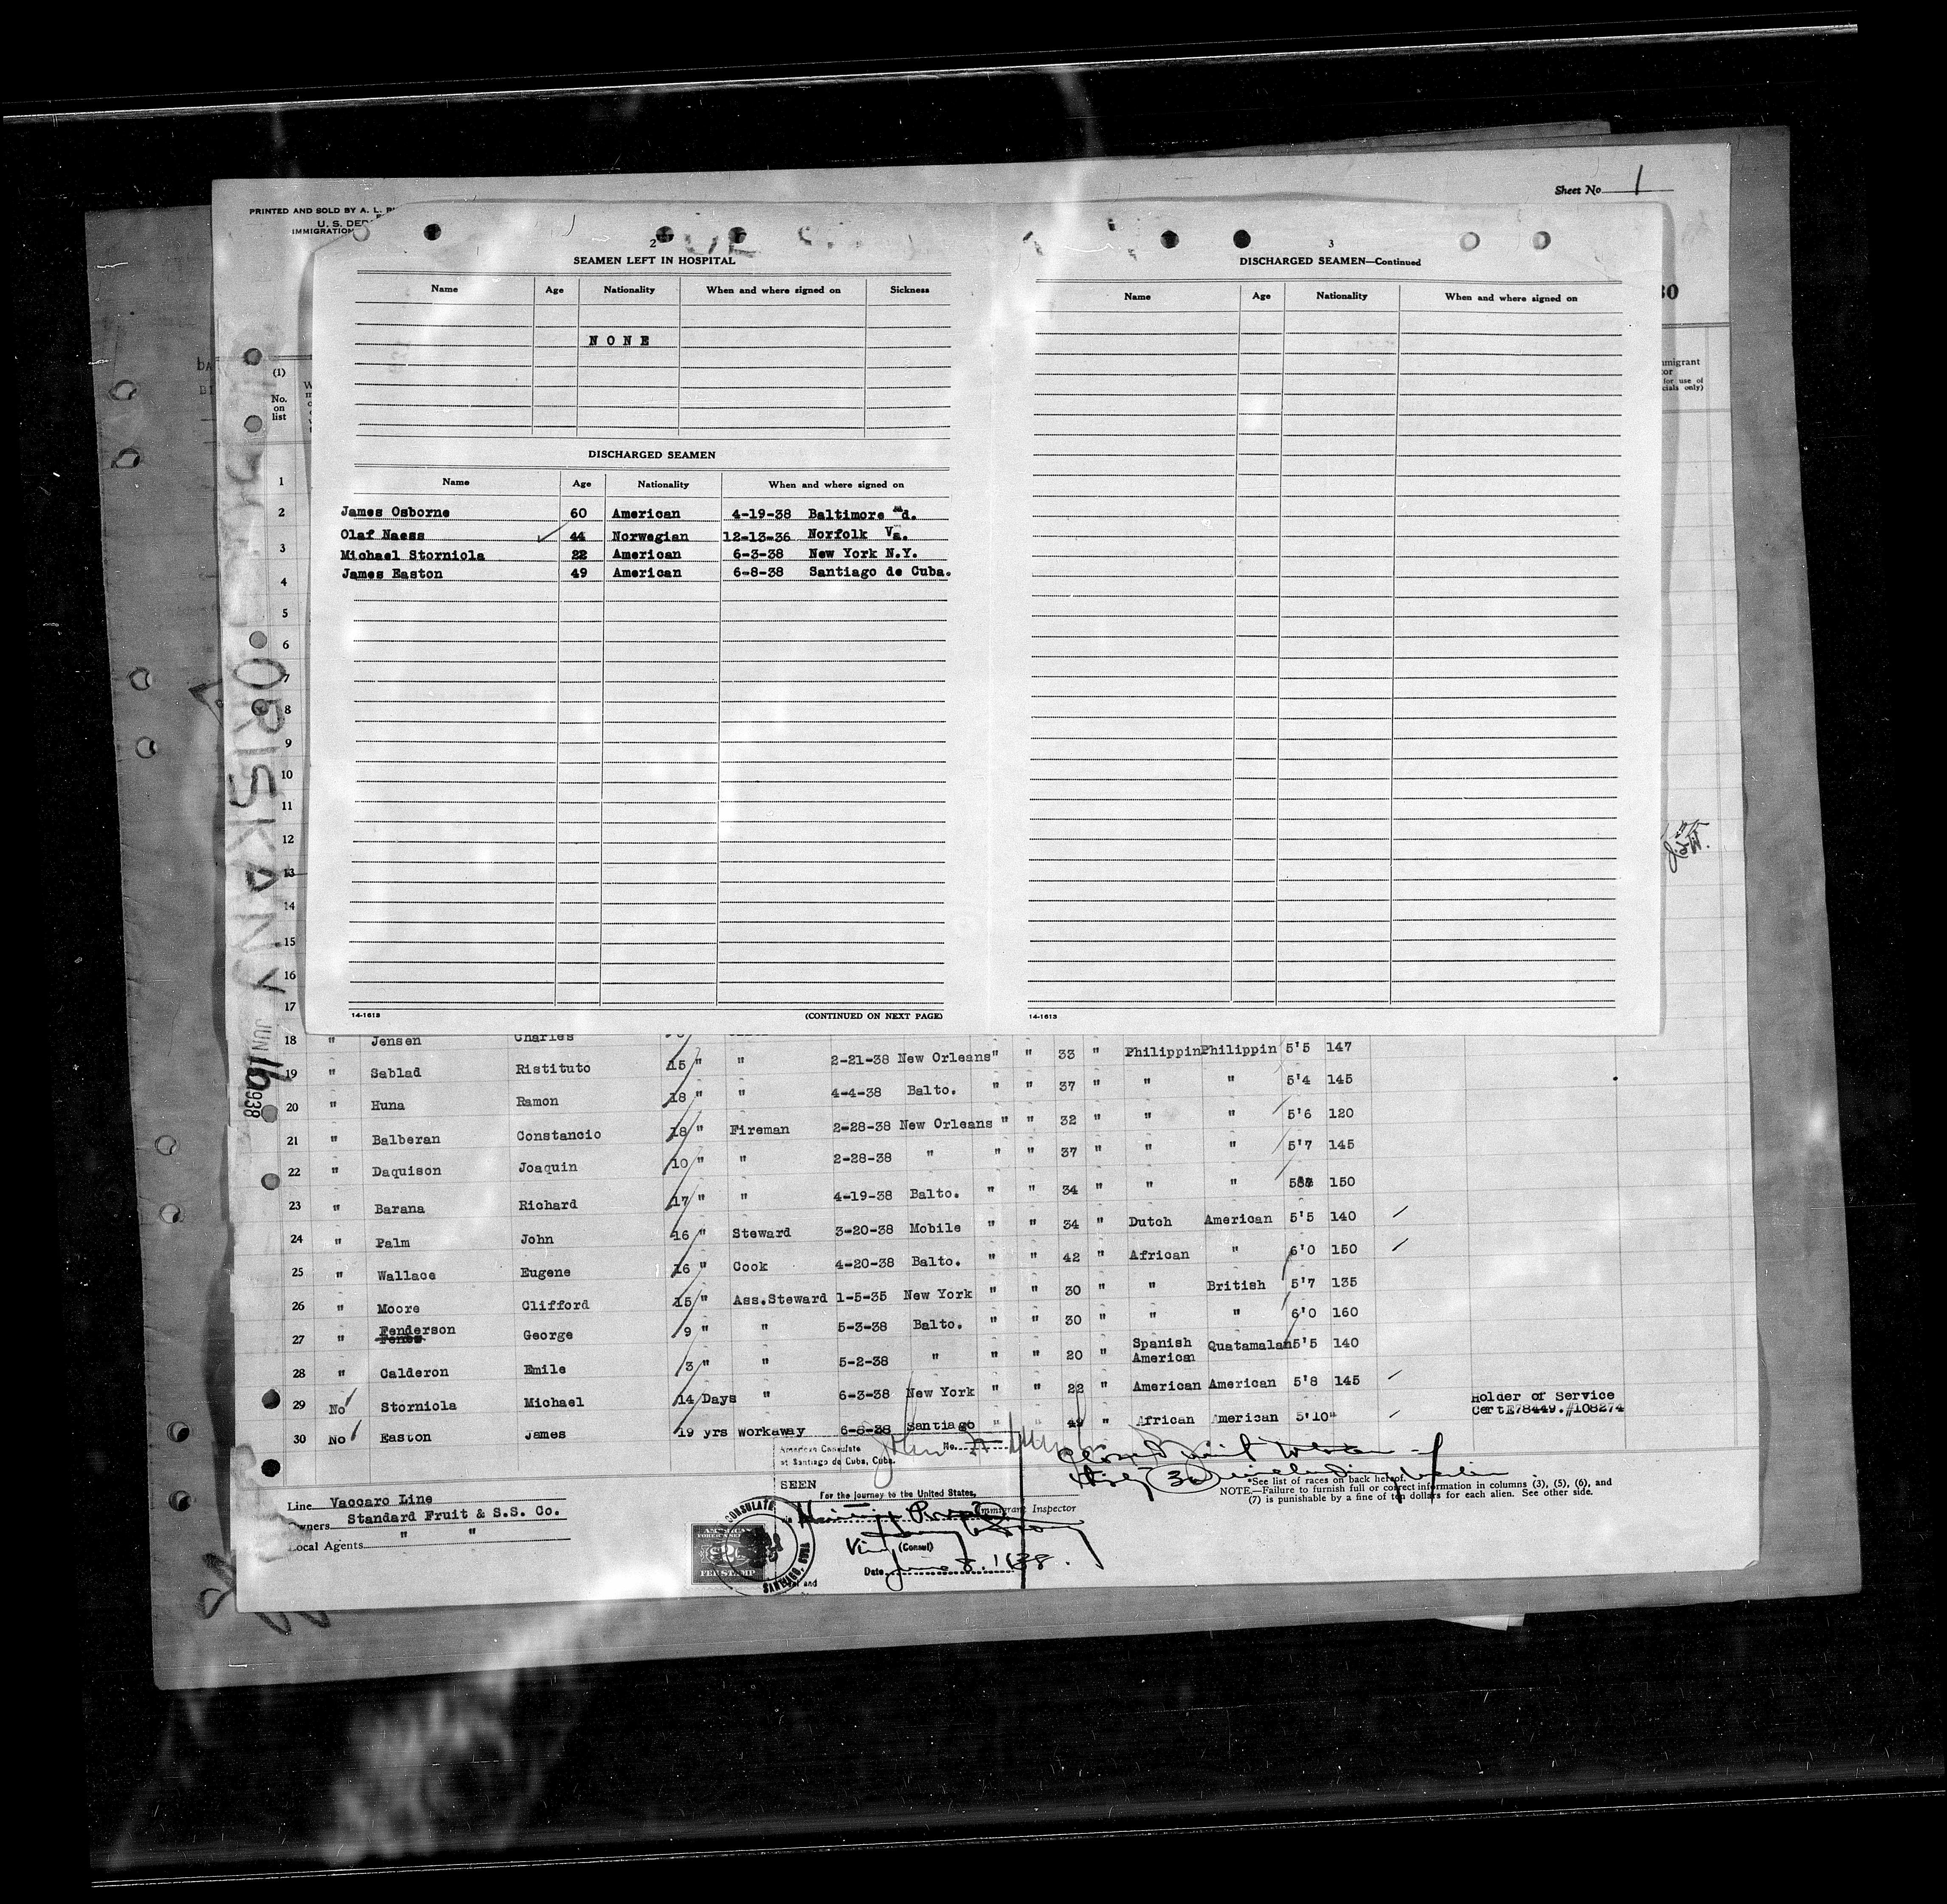 Sheet No. 1
PRINTED AND SOLD BY A. L.
U. S. DEP
IMMIGRATION
2
SEAMEN LEFT IN HOSPITAL
Name Age Nationality When and where signed on Sickness
N O N E
DISCHARGED SEAMEN
Name Age Nationality When and where signed on
James Osborne 60 American 4-19-38 Baltimore Md.
Olaf Naess 44 Norwegian 12-13-36 Norfolk Va.
Michael Storniola 22 American 6-3-38 New York N.Y.
James Easton 49 American 6-8-38 Santiago de Cuba.
14-1613 (CONTINUED ON NEXT PAGE)
3
DISCHARGED SEAMEN—Continued
Name Age Nationality When and where signed on
14-1613
30
(1)
No.
on
list
1
2
3
4
5
6
7
8
9
10
11
12
13
14
15
16
17
ORISKANY
JUN 16 1938
18 " Jensen Charles
19 " Sablad Ristituto 15 " " 2-21-38 New Orleans " " 33 " Philippin Philippin 5'5 147
20 " Huna Ramon 18 " " 4-4-38 Balto. " " 37 " " " 5'4 145
21 " Balberan Constancio 18 " Fireman 2-28-38 New Orleans " " 32 " " " 5'6 120
22 " Daquison Joaquin 10 " " 2-28-38 " " " 37 " " " 5'7 145
23 " Barana Richard 17 " " 4-19-38 Balto. " " 34 " " " 150
24 " Palm John 16 " Steward 3-20-38 Mobile " " 34 " Dutch American 5'5 140
25 " Wallace Eugene 16 " Cook 4-20-38 Balto. " " 42 " African " 6'0 150
26 " Moore Clifford 15 " Ass.Steward 1-5-35 New York " " 30 " " British 5'7 135
27 " Fenderson George 9 " " 5-3-38 Balto. " " 30 " " " 6'0 160
28 " Calderon Emile 3 " " 5-2-38 " " " 20 " Spanish American Quatamalan 5'5 140
29 No Storniola Michael 14 Days " 6-3-38 New York " " 22 " American American 5'8 145
30 No Easton James 19 yrs Workaway 6-8-38 Santiago " " 49 " African American 5'10"
Holder of Service
Cert E78449.#108274
Line Vaccaro Line
Owners Standard Fruit & S.S. Co.
Local Agents " "
American Consulate
at Santiago de Cuba, Cuba.
No.
SEEN
For the journey to the United States,
via
Immigrant Inspector
(Consul)
Date June 8. 1938.
AMERICAN
FEE STAMP
CONSULATE
SANTIAGO, CUBA
*See list of races on back hereof.
NOTE.—Failure to furnish full or correct information in columns (3), (5), (6), and
(7) is punishable by a fine of ten dollars for each alien. See other side.